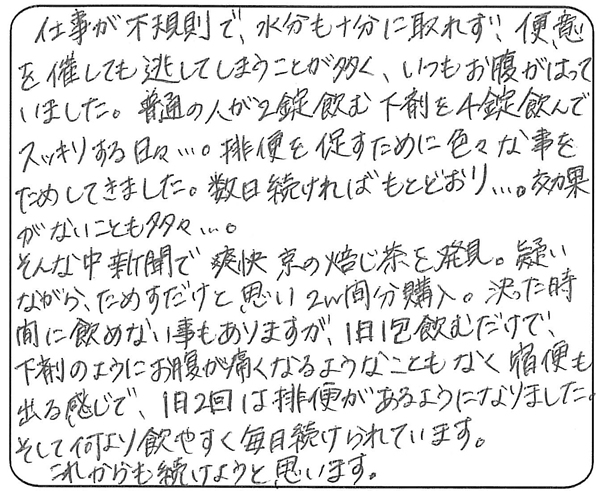 仕事が不規則で、水分も十分に取れず、便意
を催しても逃してしまうことが多く、いつもお腹がはって
いました。普通の人が2錠飲む下剤を4錠飲んで
スッキリする日々…。排便を促すために色々な事を
ためしてきました。数日続ければもとどおり…。効果
がないことも多々…。
そんな中新聞で爽快京の焙じ茶を発見。疑い
ながら、ためすだけと思い2w間分購入。決った時
間に飲めない事もありますが、1日1包飲むだけで、
下剤のようにお腹が痛くなるようなこともなく宿便も
出る感じで、1日2回は排便があるようになりました。
そして何より飲やすく毎日続けられています。
これからも続けようと思います。